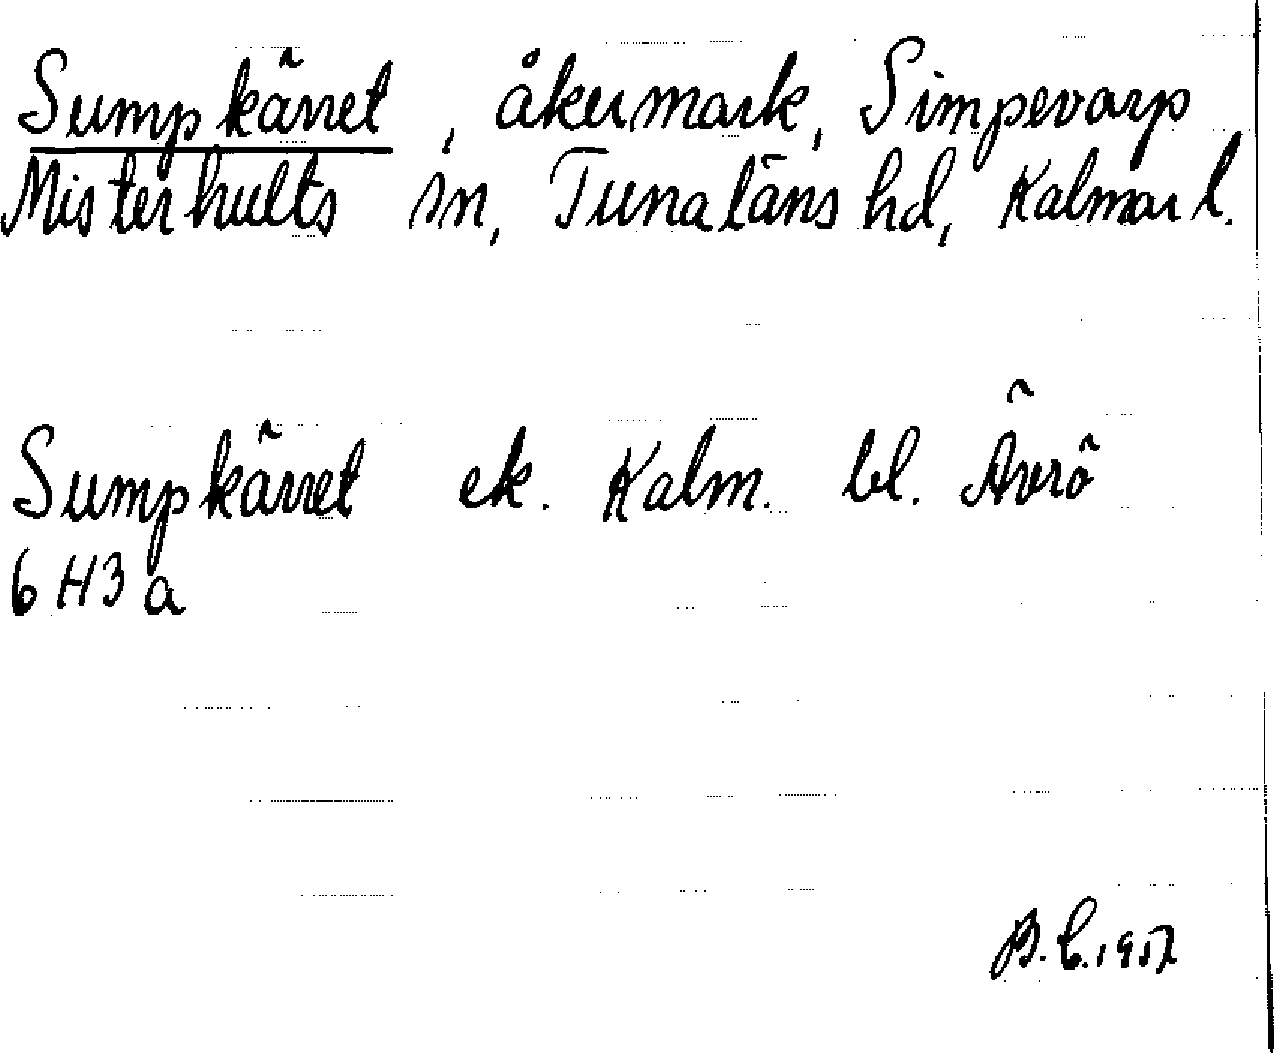 Sumpkärret, åkermark, Simpevarp
Misterhults sn, Tunaläns hd, Kalmar l.
Sumpkärret ek. Kalm. bl. Ävrö
6 H3 a
B. C. 1957